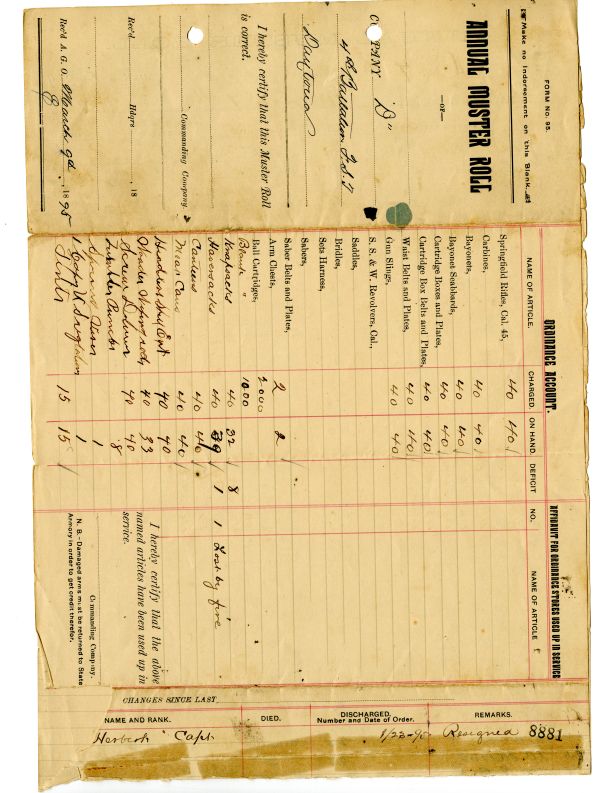 FORM NO. 95.
Make no Indorsement on this Blank.
ANNUAL MUSTER ROLL
—OF—
COMPANY "D"
4th Battalion F.S.T
Daytona
I hereby certify that this Muster Roll
is correct.
Commanding Company.
Rec'd. Hdqrs. 18
Rec'd A. G. O. March 9th, 1895
ORDNANCE ACCOUNT.
NAME OF ARTICLE. CHARGED. ON HAND. DEFICIT
Springfield Rifles, Cal. 45, 40 40
Carbines,
Bayonets, 40 40
Bayonet Scabbards, 40 40
Cartridge Boxes and Plates, 40 40
Cartridge Box Belts and Plates, 40 40
Waist Belts and Plates, 40 40
Gun Slings, 40 40
S. S. & W. Revolvers, Cal.,
Saddles,
Bridles,
Sets Harness,
Sabers,
Saber Belts and Plates,
Arm Chests, 2 2
Ball Cartridges, 2000
Blank " 1000
Knapsacks 40 32 8
Haversacks 40 39 1
Canteens 40 40
Mean Cans 40 40
40 40
40 33
Screw Driver 40 40
Tumbler Punches 8
Spring Vises 1
1
Tents 15 15
AFFIDAVIT FOR ORDNANCE STORES USED UP IN SERVICE
NO. NAME OF ARTICLE
1 Lost by fire
I hereby certify that the above
named articles have been used up in
service.
Commanding Company.
N. B.-Damaged arms must be returned to State
Armory in order to get credit therefor.
CHANGES SINCE LAST
NAME AND RANK. DIED. DISCHARGED. Number and Date of Order. REMARKS.
Capt. Resigned
8881